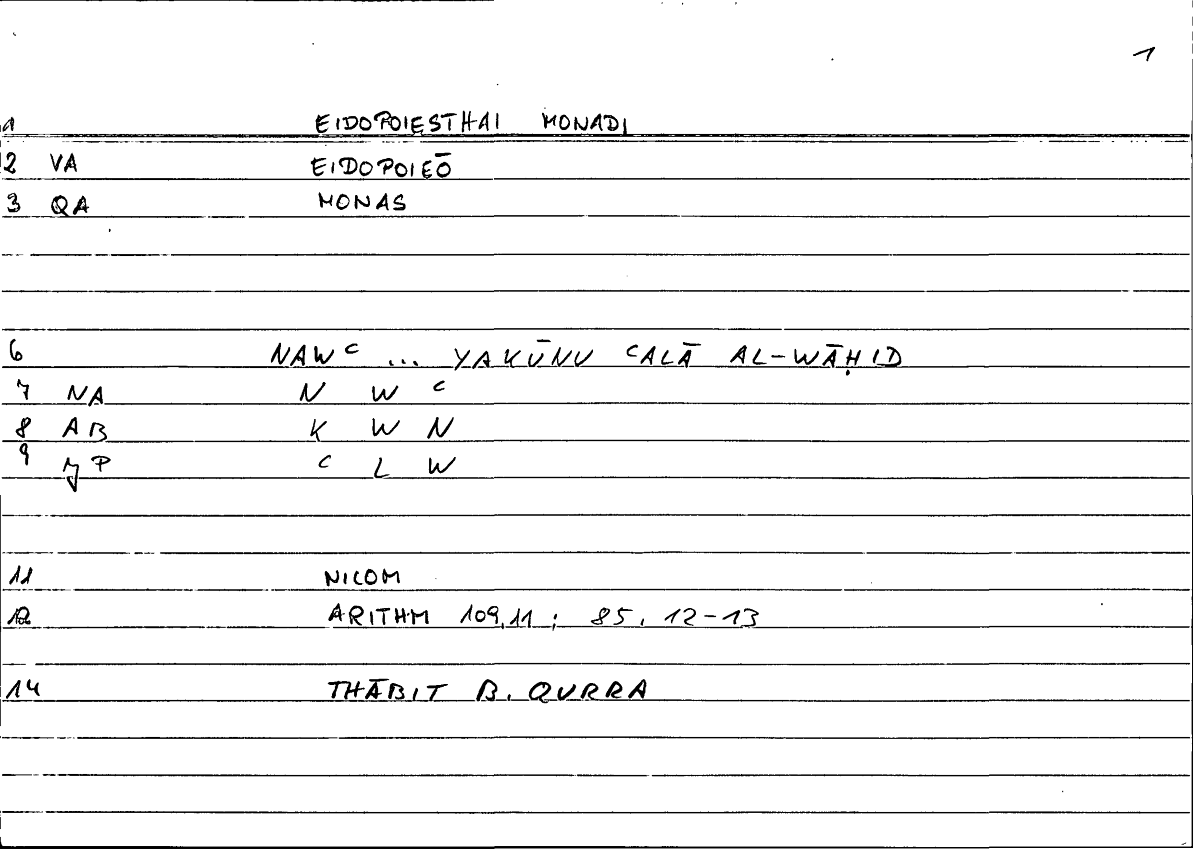 1
1 EIDOPOIESTHAI MONADI
2 VA EIDOPOIEŌ
3 QA MONAS
6 NAWC ... YAKŪNU CALĀ AL-WĀḤID
7 NA N W C
8 AB K W N
9 P C L W
11 NICOM
12 ARITHM 109,11 ; 85, 12-13
14 THĀBIT B. QURRA